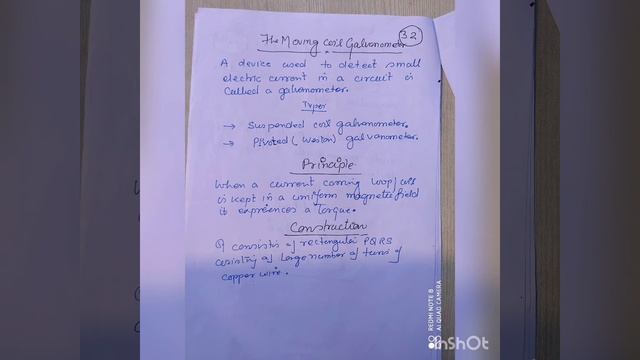 The Moving coil Galvanometer
32
A device used to detect small
electric current in a circuit is
called a galvanometer.
Types
→ Suspended coil galvanometer.
→ Pivoted (Weston) galvanometer.
Principle
When a current carring loop/coil
is kept in a uniform magnetic field
it expriences a Torque.
Construction
It consists of rectangular PQRS
consisting of large number of turns of
copper wire.
REDMI NOTE 8
AI QUAD CAMERA
InShOt